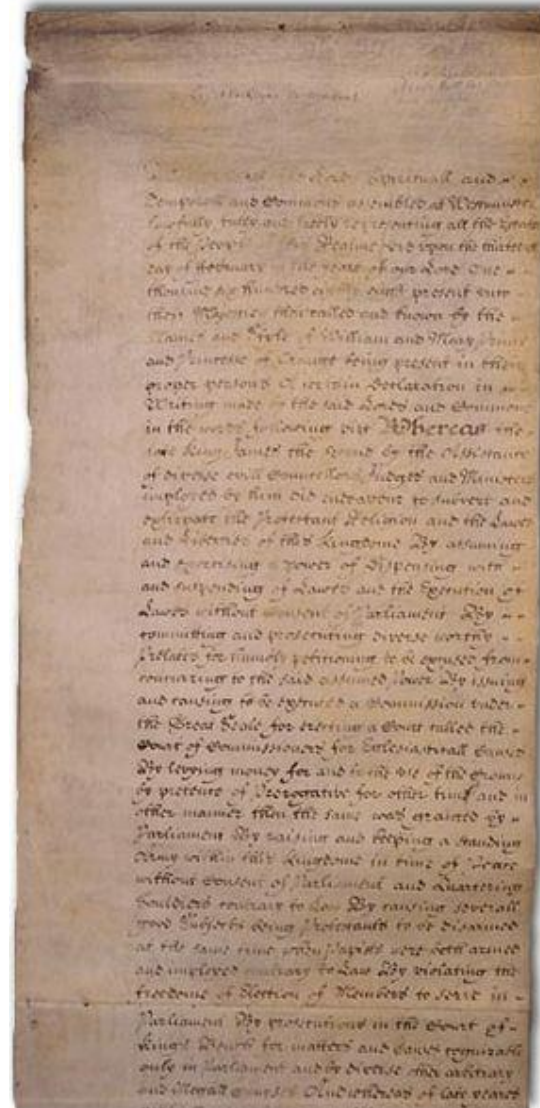 the Lords Spirituall and
Temporall and Commons assembled at Westminster
lawfully fully and freely representing all the Estates
of the People of this Realme did upon the thirteenth
day of February in the yeare of our Lord One
thousand six hundred eighty eight present unto
their Majesties then called and known by the
Names and Stile of William and Mary Prince
and Princesse of Orange being present in their
proper persons A certain Declaration in
Writing made by the said Lords and Commons
in the words following viz Whereas the
late King James the Second by the Assistance
of diverse evill Councellors Judges and Ministers
imployed by him did endeavour to subvert and
extirpate the Protestant Religion and the Lawes
and Liberties of this Kingdome By assuming
and exercising a power of dispensing with
and suspending of Lawes and the Execution of
Lawes without Consent of Parliament By
committing and prosecuting diverse worthy
Prelates for humbly petitioning to be excused from
concurring to the said assumed Power By issuing
and causing to be executed a Commission under
the Great Seale for erecting a Court called the
Court of Commissioners for Ecclesiasticall Causes
By levying money for and to the use of the Crowne
by pretence of Prerogative for other time and in
other manner then the same was granted by
Parliament By raising and keeping a standing
Army within this Kingdome in time of Peace
without Consent of Parliament and Quartering
Souldiers contrary to Law By causing severall
good Subjects being Protestants to be disarmed
at the same time when Papists were both armed
and imployed contrary to Law By violating the
freedome of Election of Members to serve in
Parliament By prosecutions in the Court of
Kings Bench for matters and causes cognizable
only in Parliament and by diverse other arbitrary
and illegall courses And whereas of late yeares